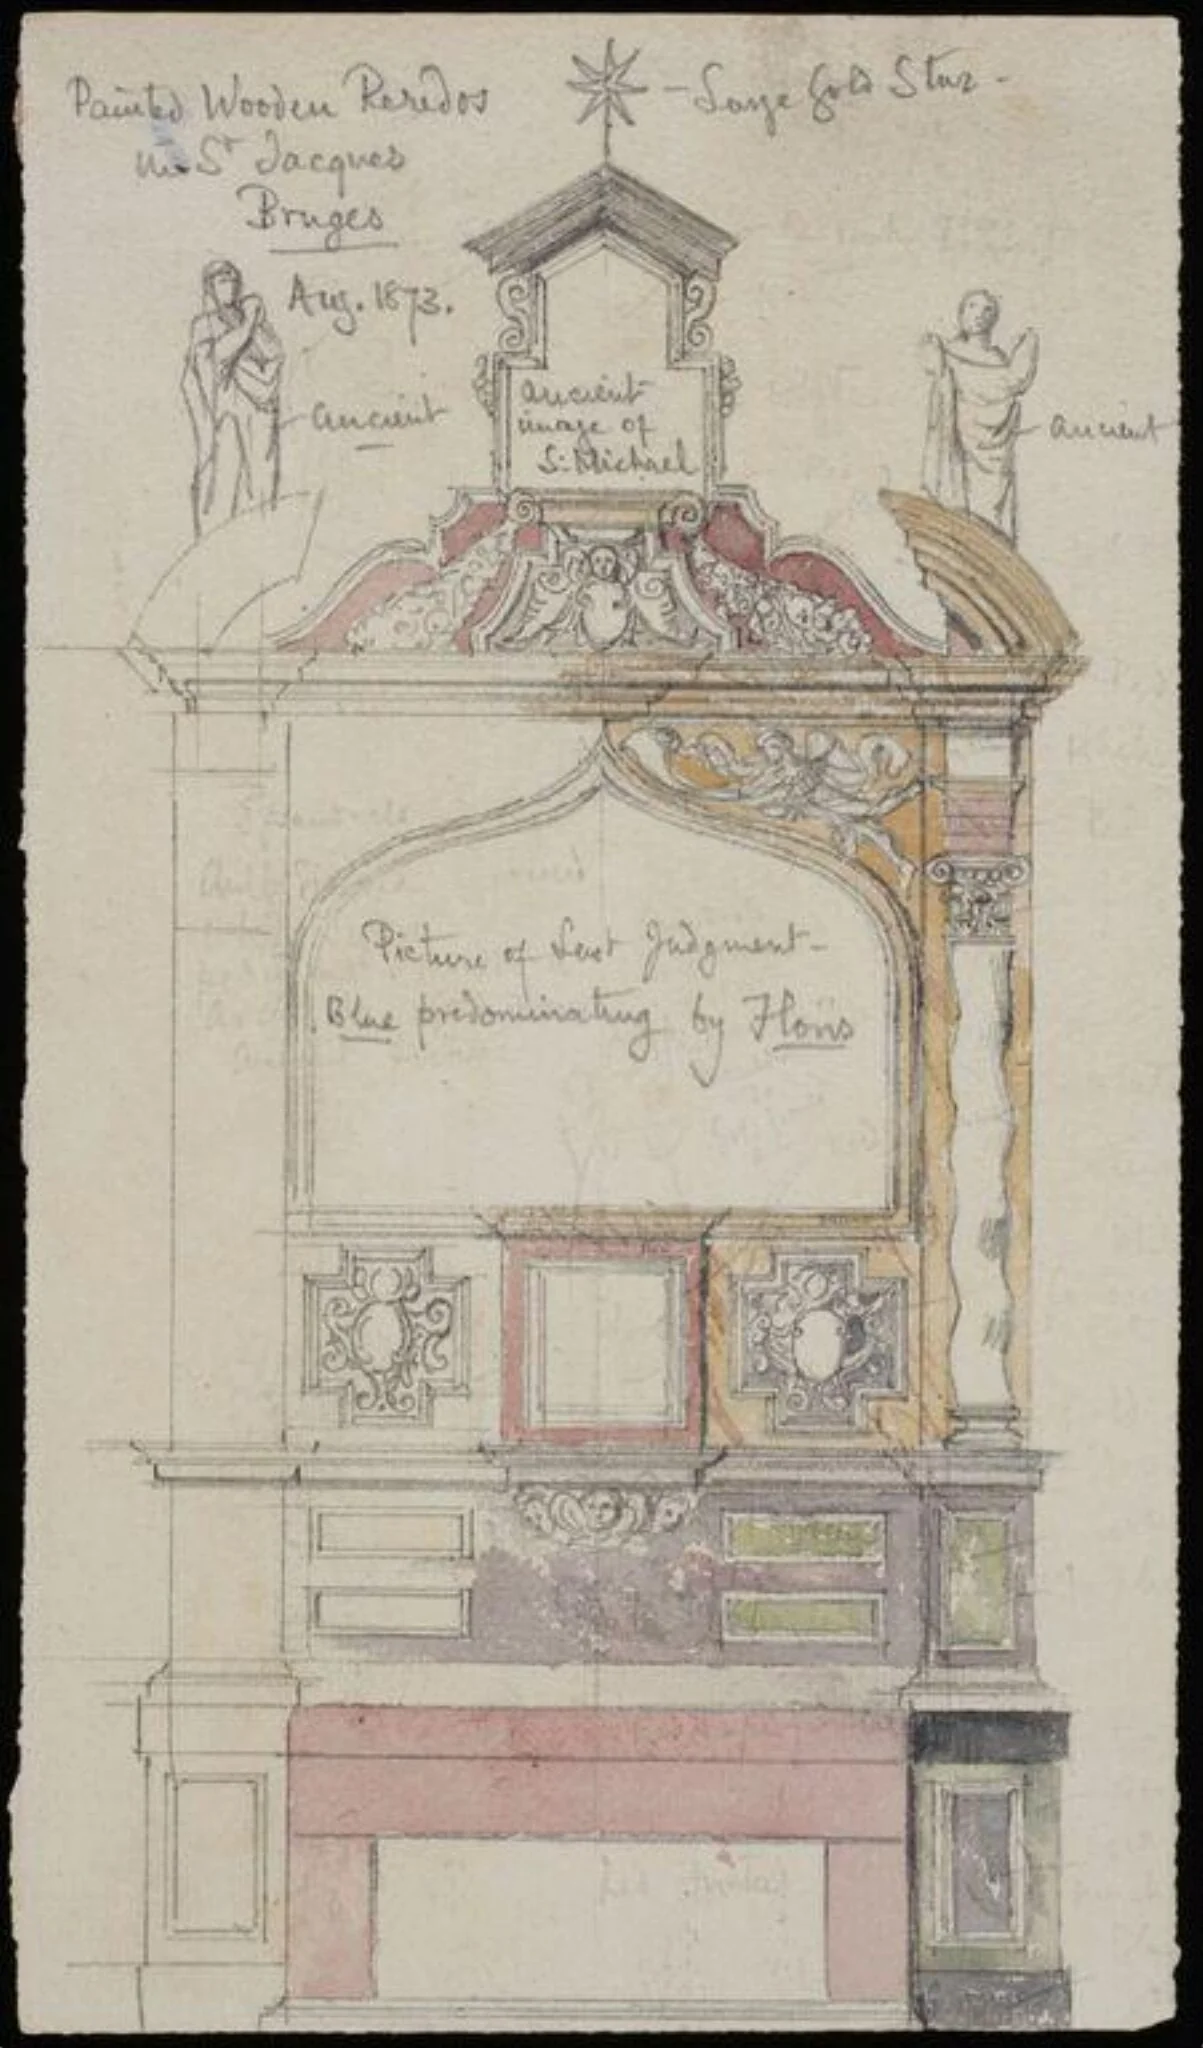 Painted Wooden Reredos
in St Jacques
Bruges
Aug. 1873.
- Large Gold Star -
Ancient
Ancient
Ancient
image of
S. Michael
Picture of Last Judgment -
Blue predominating by Floris